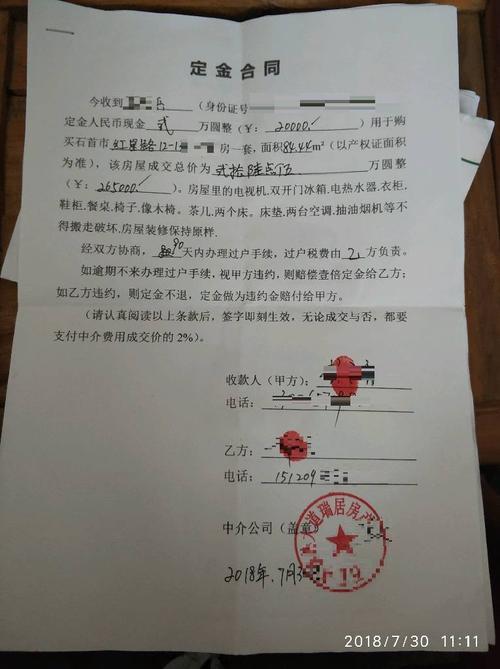 定金合同
今收到 岳 (身份证号
定金人民币现金 弍 万圆整(¥: 20000.)用于购
买石首市 红星路12-1 房一套,面积84.44m²(以产权证面积
为准),该房屋成交总价为 弍拾陆点五 万圆整
(¥: 265000.)。房屋里的电视机.双开门冰箱.电热水器.衣柜.
鞋柜.餐桌.椅子.像木椅。茶儿.两个床。床垫.两台空调.抽油烟机等不
得搬走破坏.房屋装修保持原样.
经双方协商, 90 天内办理过户手续,过户税费由 乙 方负责。
如逾期不来办理过户手续,视甲方违约,则赔偿壹倍定金给乙方;
如乙方违约,则定金不退,定金做为违约金赔付给甲方。
(请认真阅读以上条款后,签字即刻生效,无论成交与否,都要
支付中介费用成交价的2%)。
收款人(甲方):
电话:
乙方:
电话: 151209
中介公司(盖章)
大道瑞居房产
2018年.7月3
2018/7/30 11:11